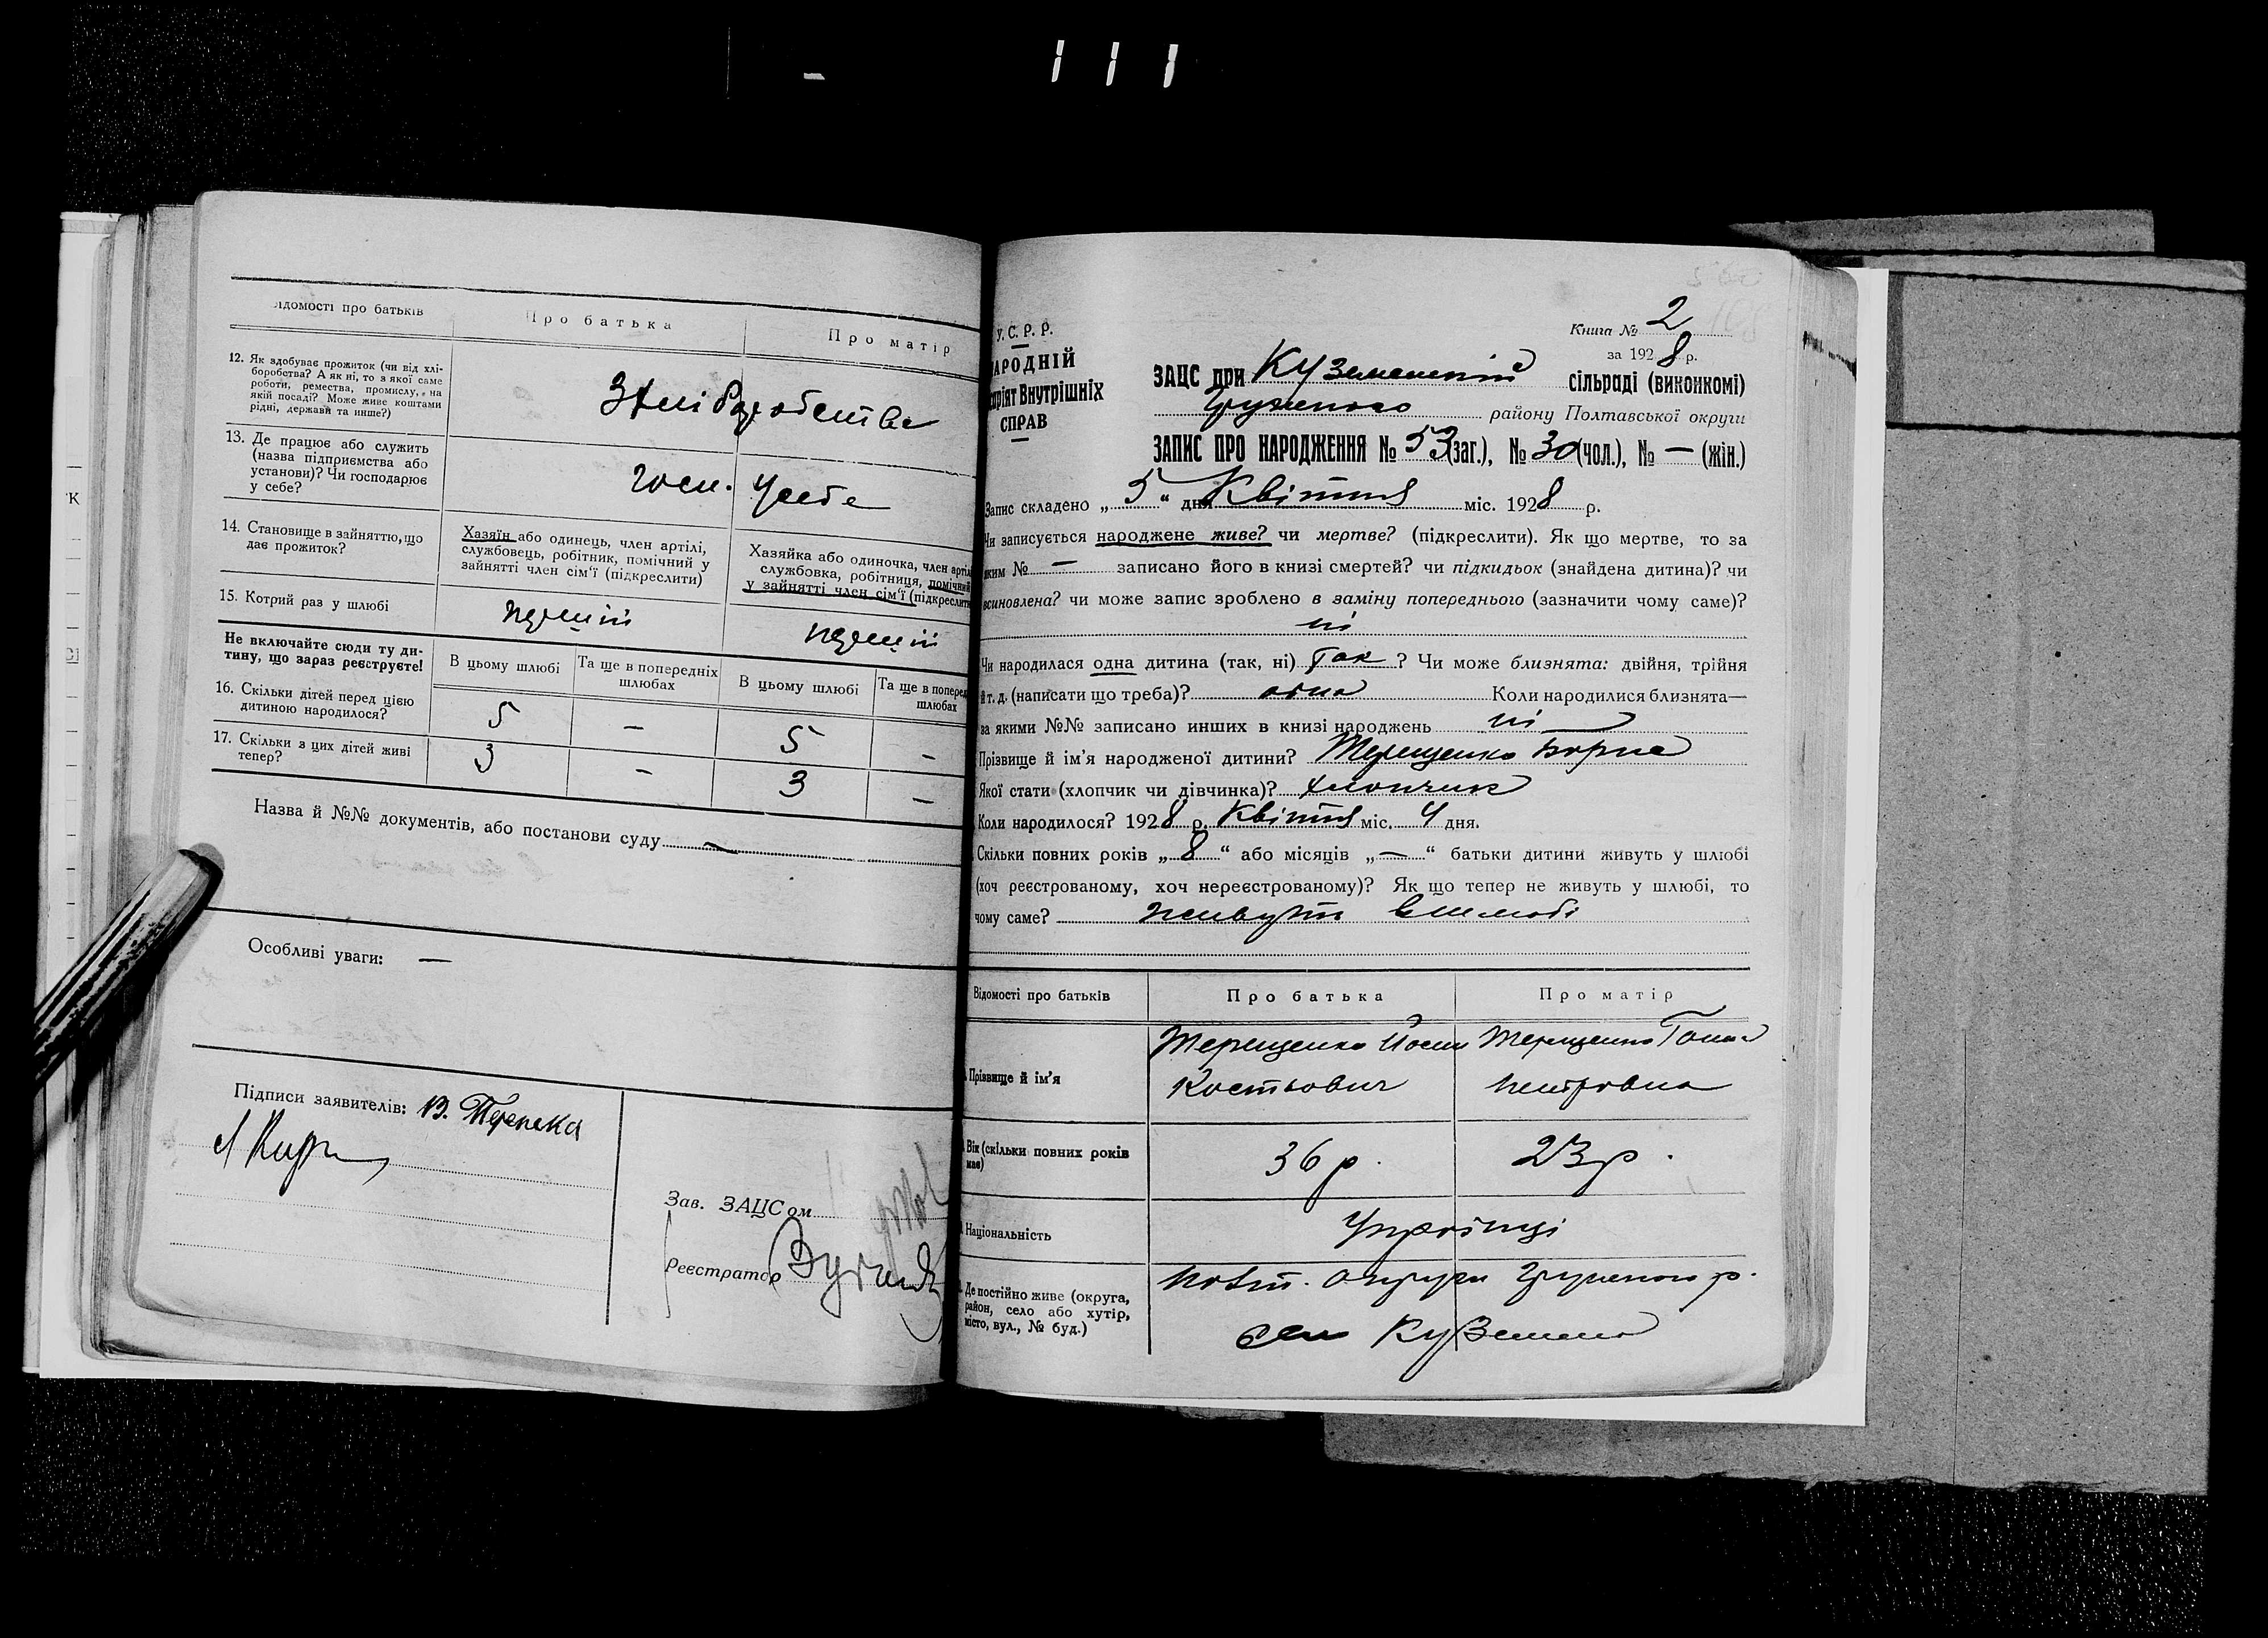 ідомості про батьків
Про батька
Про матір
12. Як здобуває прожиток (чи від хлі-
боробства? А як ні, то з якої саме
роботи, ремества, промислу, на
якій посаді? Може живе коштами
рідні, держави та инше?)
З хліборобства
13. Де працює або служить
(назва підприємства або
установи)? Чи господарює
у себе?
госп. у себе
14. Становище в зайняттю, що
дає прожиток?
Хазяїн або одинець, член артілі,
службовець, робітник, помічний у
зайнятті член сім'ї (підкреслити)
Хазяйка або одиночка, член артілі
службовка, робітниця, помічний
у зайнятті член сім'ї (підкреслити
15. Котрий раз у шлюбі
перший
перший
Не включайте сюди ту ди-
тину, що зараз реєструєте!
В цьому шлюбі
Та ще в попередніх
шлюбах
В цьому шлюбі
Та ще в поперед
шлюбах
16. Скільки дітей перед цією
дитиною народилося?
5 — 5 —
17. Скільки з цих дітей живі
тепер?
3 — 3 —
Назва й №№ документів, або постанови суду —
Особливі уваги: —
Підписи заявителів:
Зав. ЗАЦСом
Реєстратор
У.С.Р.Р.
АРОДНІЙ
аріят Внутрішніх
СПРАВ
Книга № 2
за 1928 р.
ЗАЦС при Куземенській сільраді (виконкомі)
Грунського району Полтавської округи
ЗАПИС ПРО НАРОДЖЕННЯ № 53 (заг.), № 30 (чол.), № — (жін.)
Запис складено „ 5 “ дня Квітня міс. 1928 р.
Чи записується народжене живе? чи мертве? (підкреслити). Як що мертве, то за
яким № — записано його в книзі смертей? чи підкидьок (знайдена дитина)? чи
всиновлена? чи може запис зроблено в заміну попереднього (зазначити чому саме)?
ні
Чи народилася одна дитина (так, ні) Так ? Чи може близнята: двійня, трійня
й т. д. (написати що треба)? одна Коли народилися близнята—
за якими №№ записано инших в книзі народжень ні —
Прізвище й ім'я народженої дитини? Терещенко Борис
Якої стати (хлопчик чи дівчинка)? хлопчик
Коли народилося? 1928 р. Квітня міс. 4 дня.
Скільки повних років „ 8 “ або місяців „ — “ батьки дитини живуть у шлюбі
(хоч реєстрованому, хоч нереєстрованому)? Як що тепер не живуть у шлюбі, то
чому саме? живуть в шлюбі
Відомості про батьків
Про батька
Про матір
Прізвище й ім'я
Терещенко Йосип
Костьович
Терещенко Ганна
Петровна
Вік (скільки повних років
має)
36 р.
23 р.
Національність
Українці
Де постійно живе (округа,
район, село або хутір,
місто, вул., № буд.)
Полт. округи Грунського р.
село Куземено